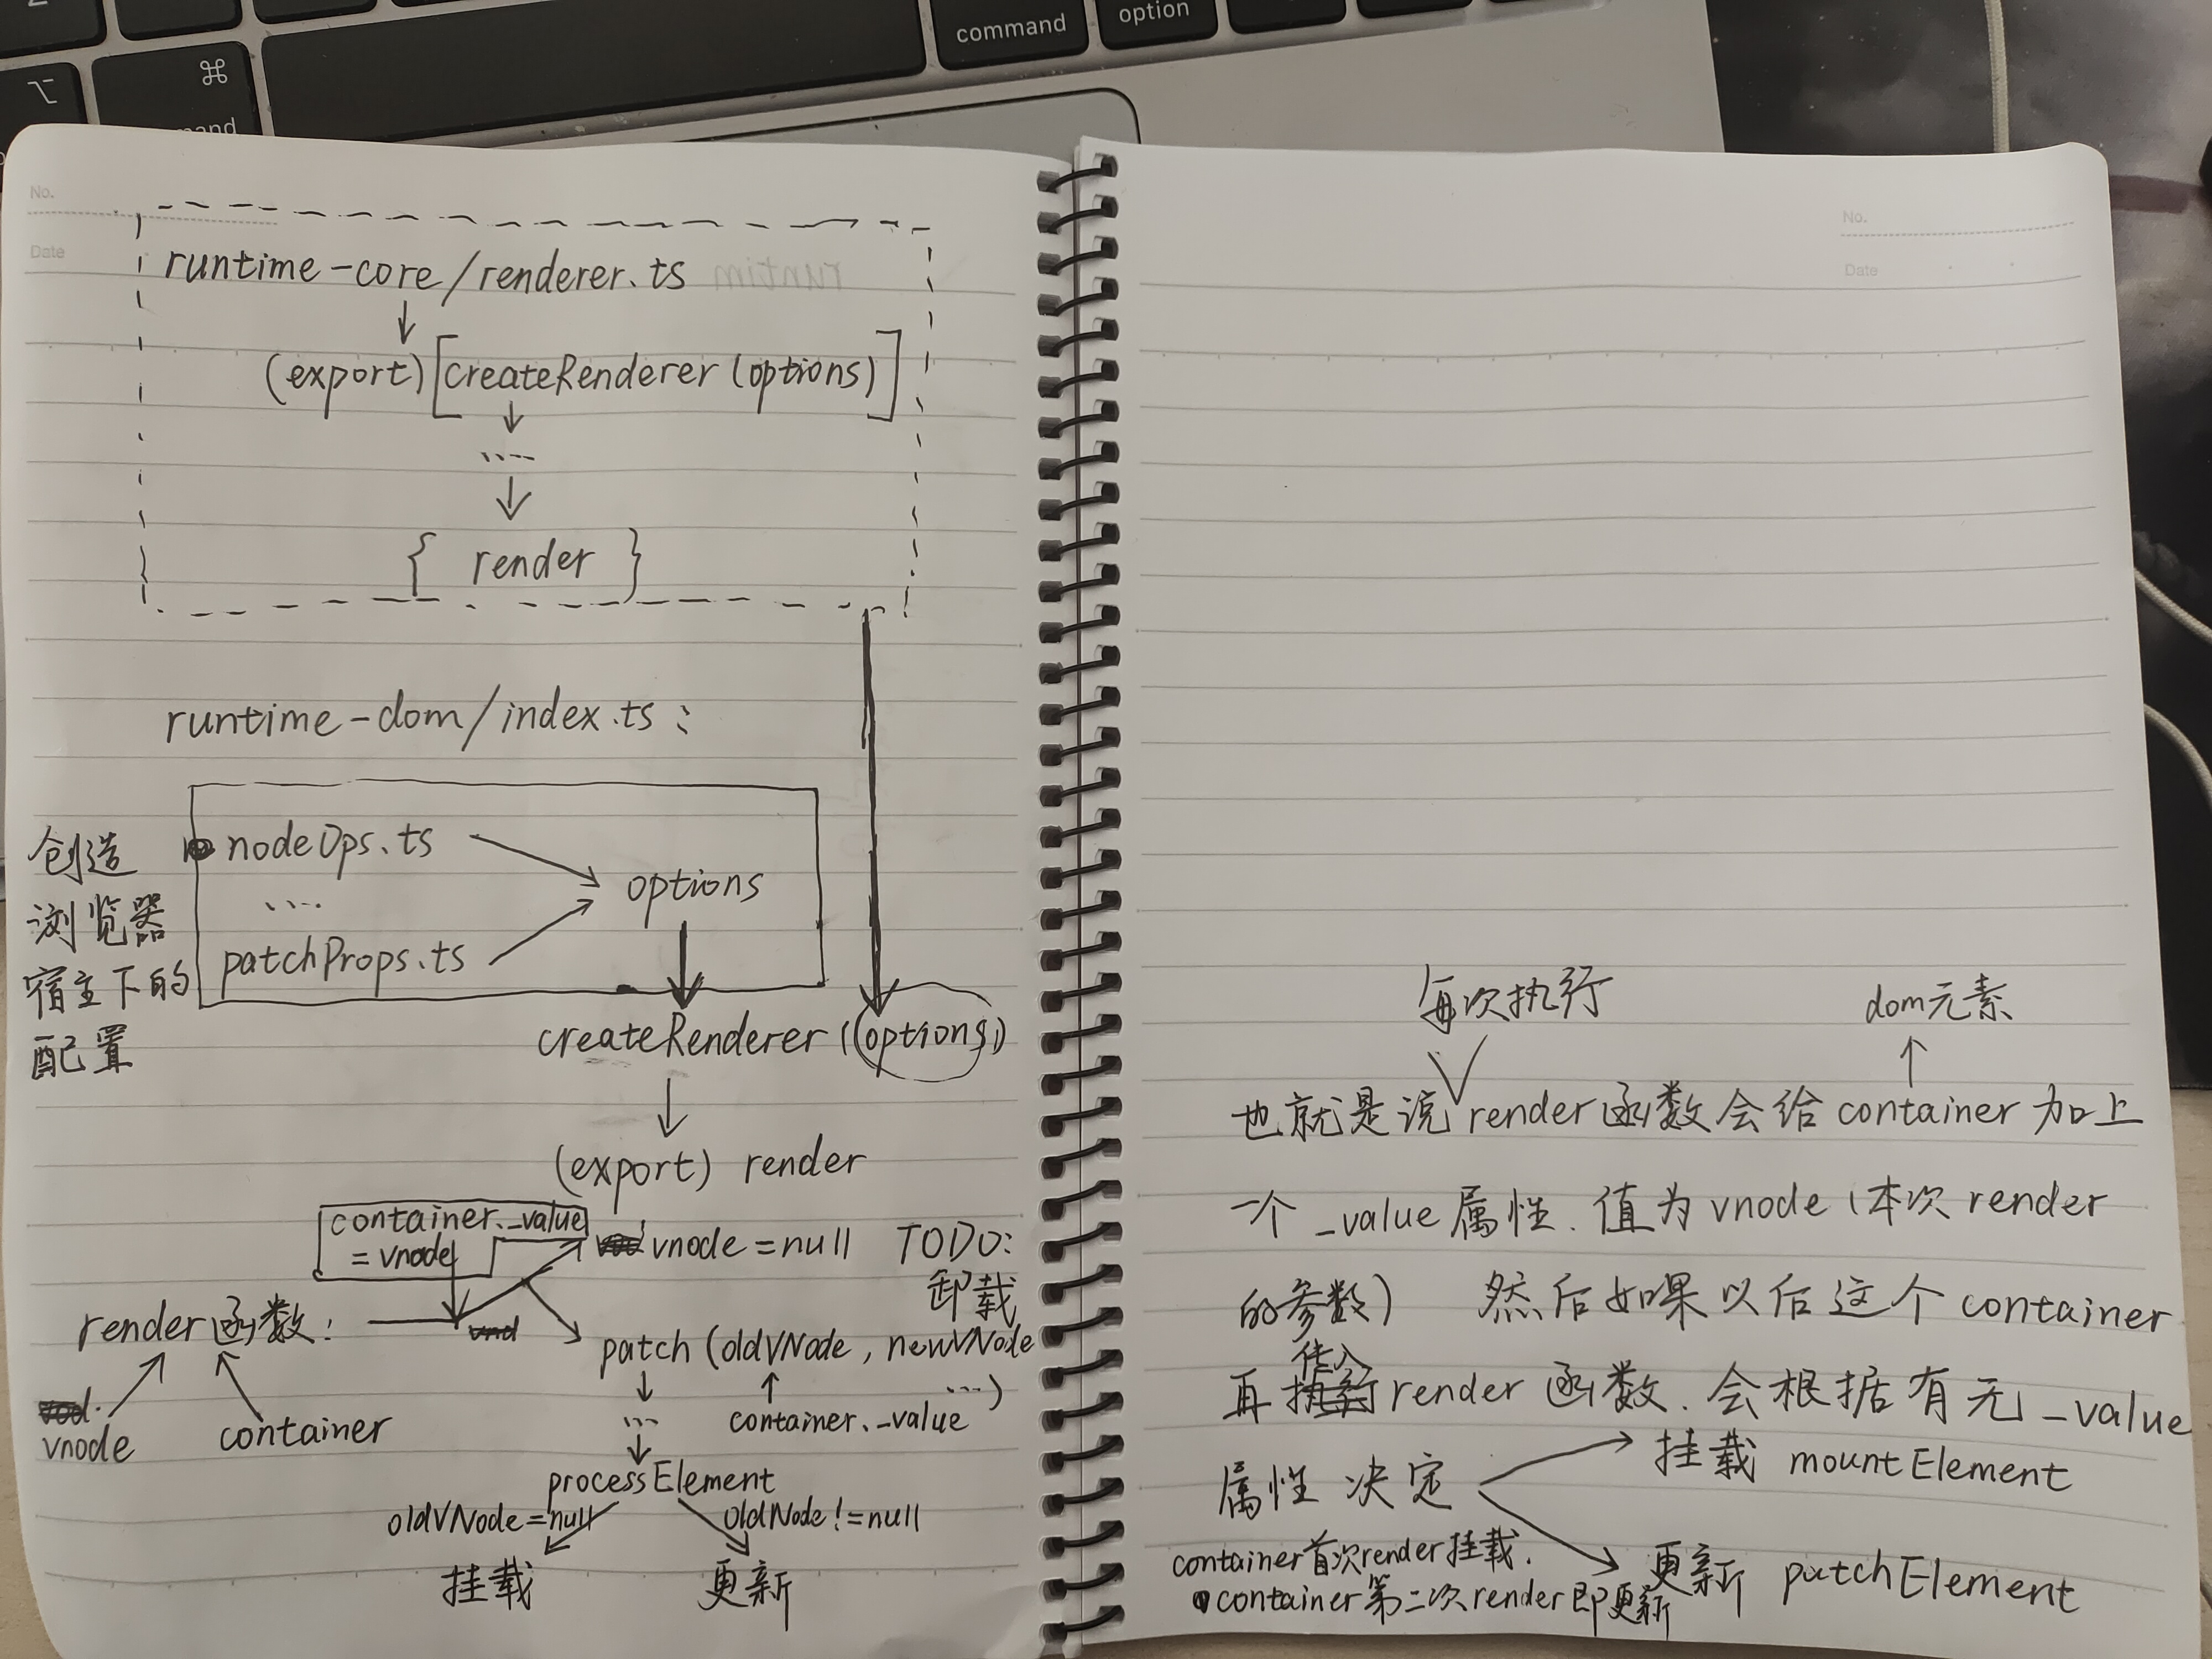 command
option
⌥
⌘
No.
Date
runtime-core/renderer.ts
(export) [createRenderer (options)]
....
{ render }
runtime-dom/index.ts:
创造
浏览器
宿主下的
配置
nodeOps.ts
....
patchProps.ts
options
createRenderer ((options))
(export) render
container._value
= vnode
vnode = null TODO:
卸载
render函数:
vnode
container
patch (oldVNode, newVNode
...)
...
container._value
processElement
oldVNode=null
oldNode!=null
挂载
更新
No.
Date
每次执行
dom元素
也就是说render函数会给container加上
一个_value属性.值为vnode(本次render
的参数) 然后如果以后这个container
再传入render函数.会根据有无_value
属性 决定
挂载 mountElement
更新 patchElement
container首次render挂载.
container第二次render即更新